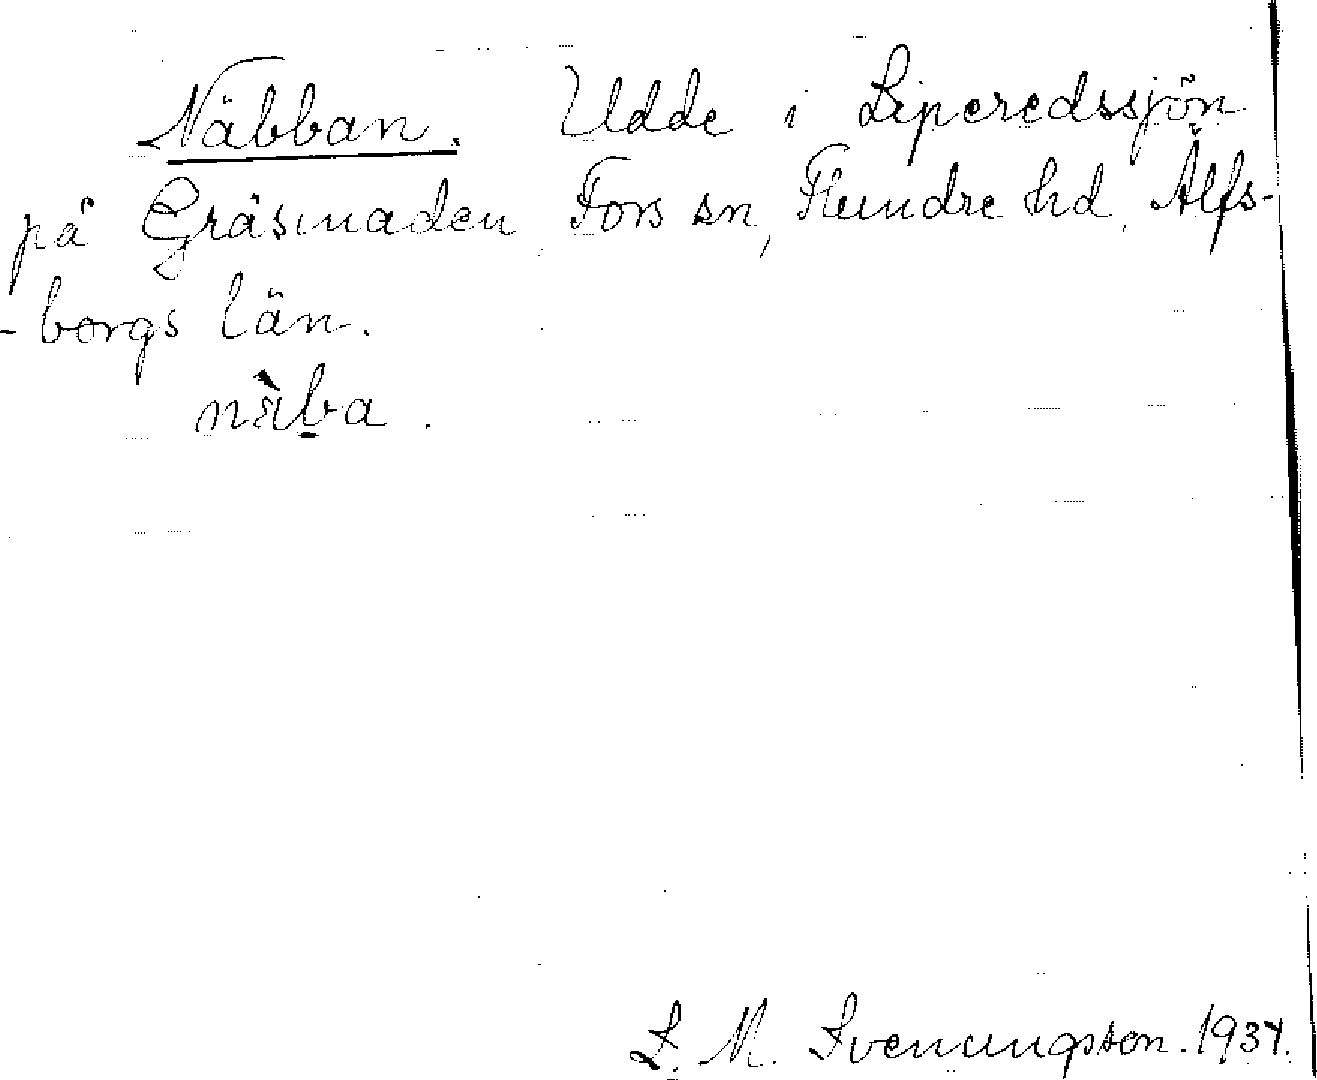 Näbban. Udde i Liperedssjön
på Gräsmaden, Fors sn, Flundre hd, Älfs-
-borgs län.
S. M. Svenungsson. 1934.